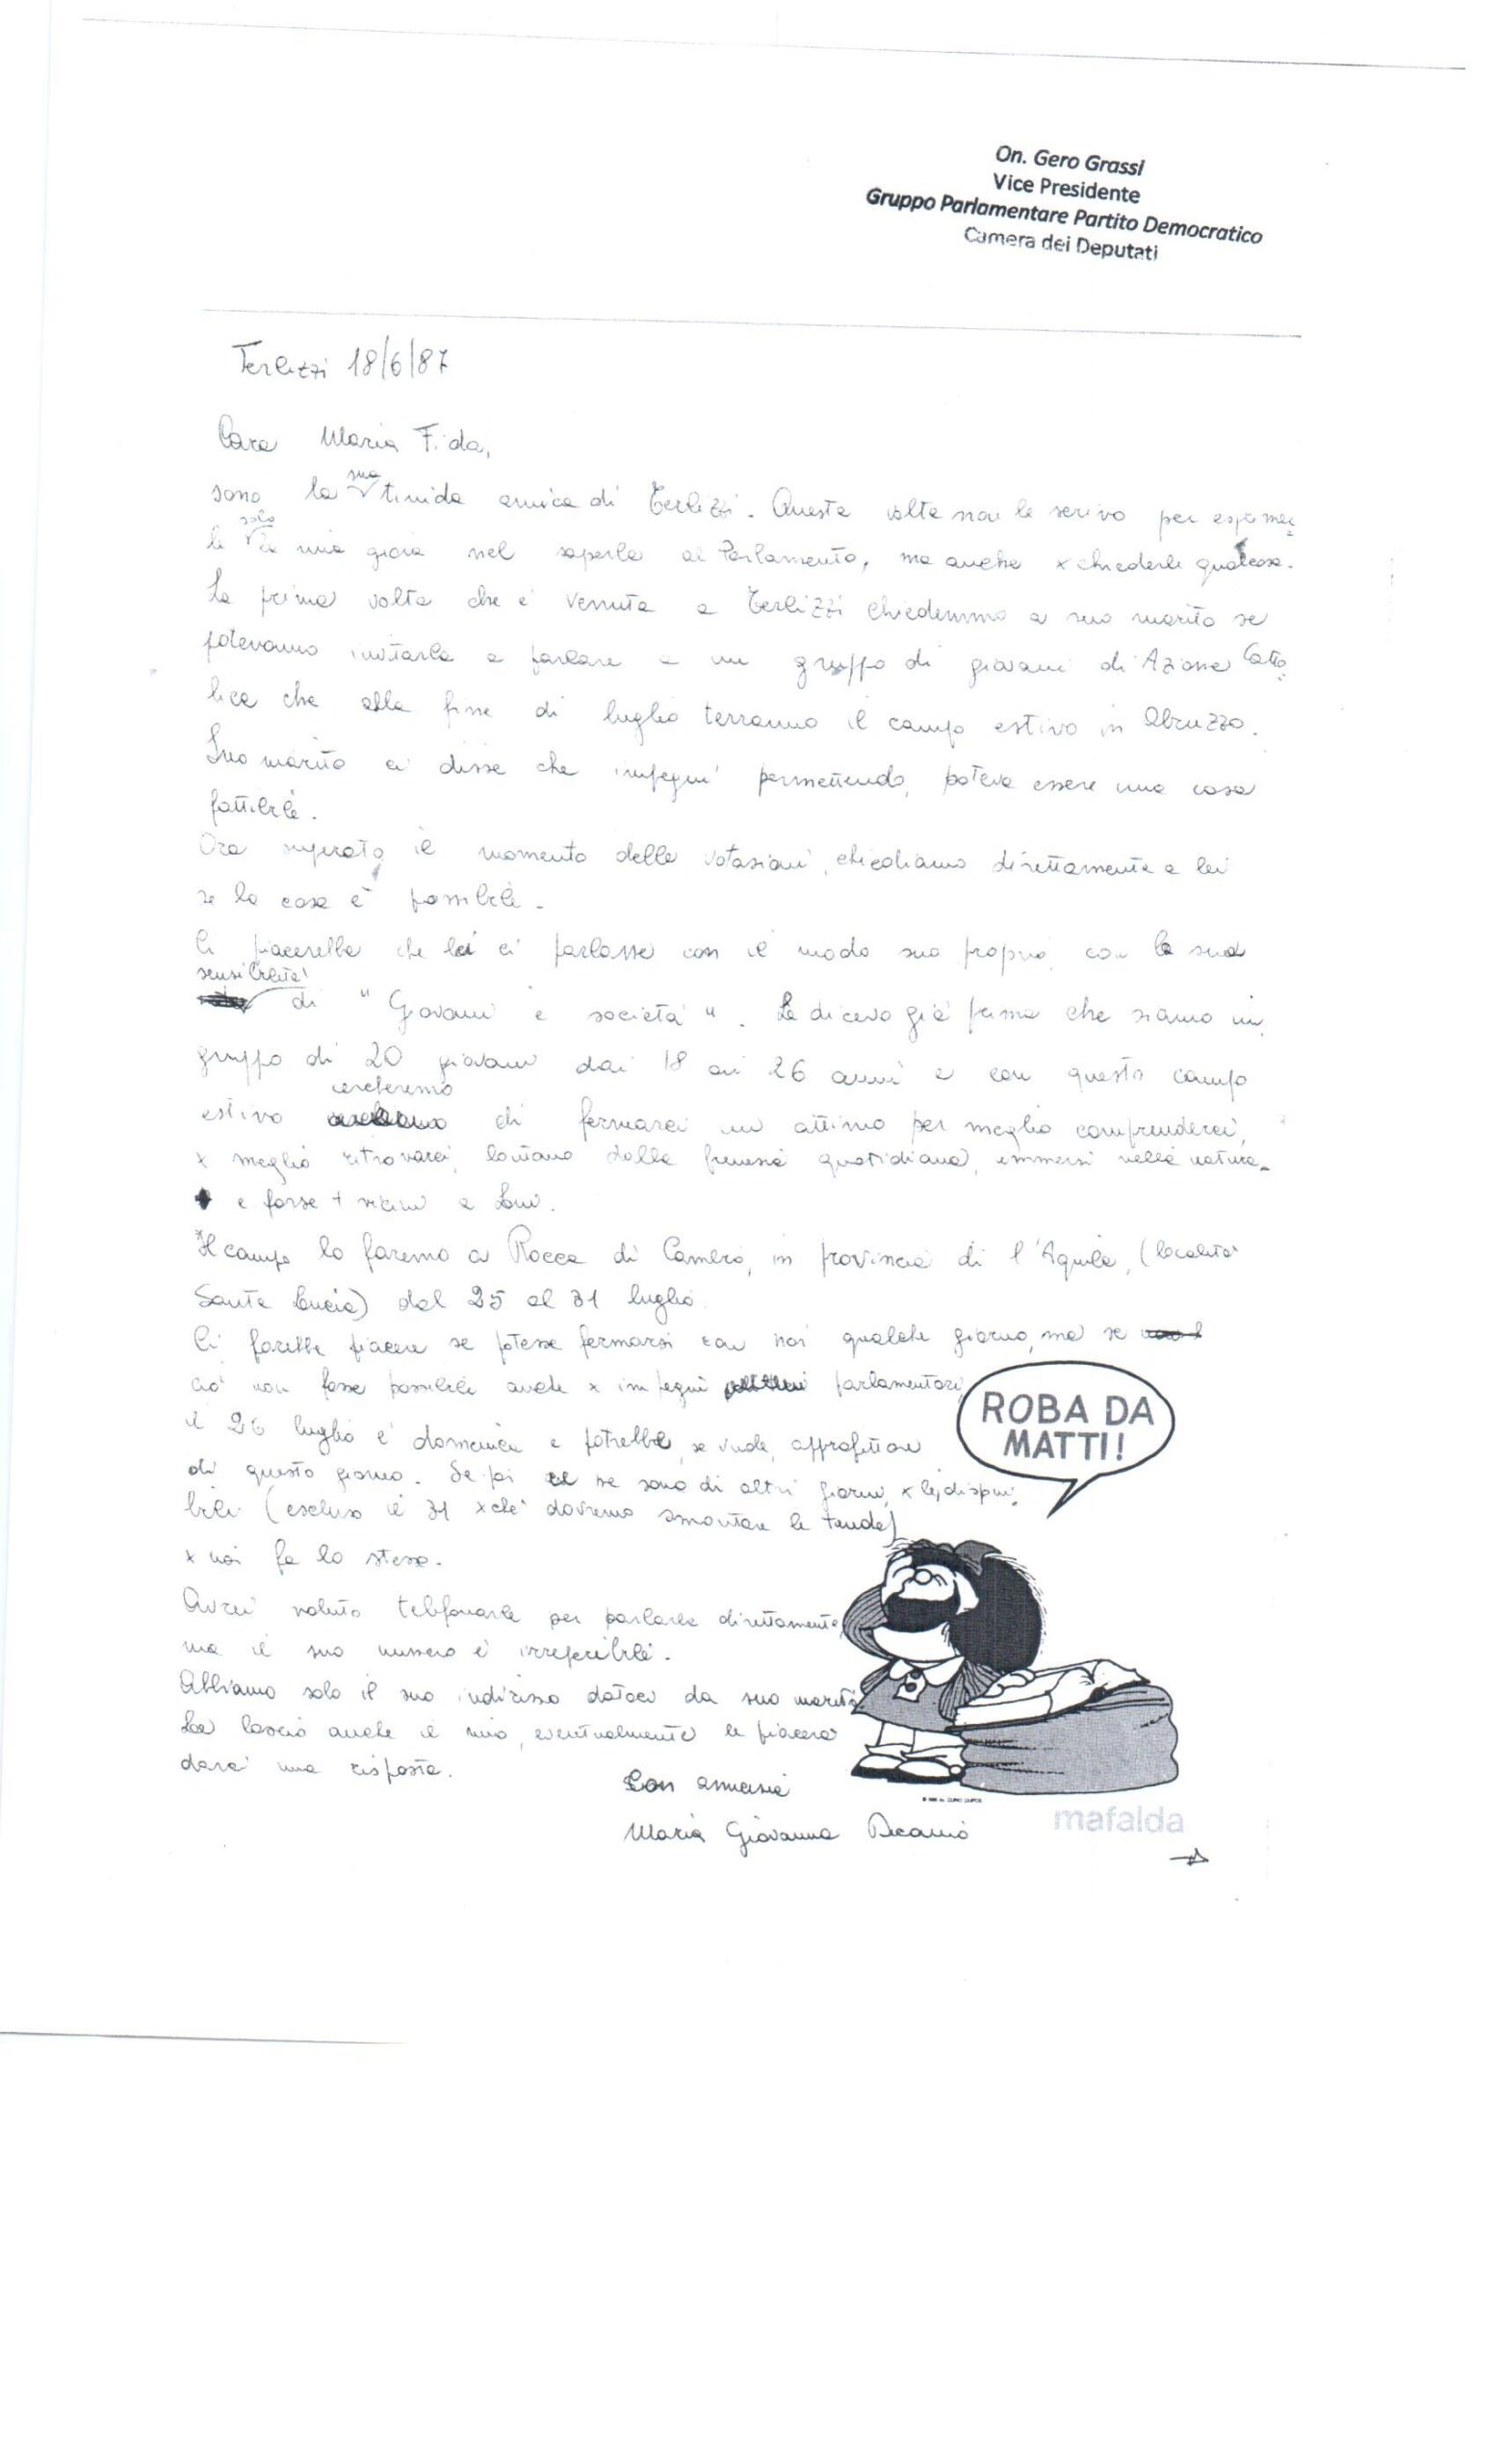 On. Gero Grassi
Vice Presidente
Gruppo Parlamentare Partito Democratico
Camera dei Deputati
Terlizzi 18/6/87
Cara Maria Fida,
sono la sua timida amica di Terlizzi. Questa volta non le scrivo per esprimer
le solo la mia gioia nel saperla al Parlamento, ma anche x chiederle qualcosa.
La prima volta che è venuta a Terlizzi chiedemmo a suo marito se
potevamo invitarla a parlare a un gruppo di giovani di Azione Catto
lica che alla fine di luglio terranno il campo estivo in Abruzzo.
Suo marito ci disse che impegni permettendo, poteva essere una cosa
fattibile.
Ora superato il momento delle votazioni, chiediamo direttamente a lei
se la cosa è possibile.
Ci piacerebbe che lei ci parlasse con il modo suo proprio, con la sua
sensibilità di "Giovani e società". Le dicevo già prima che siamo un
gruppo di 20 giovani dai 18 ai 26 anni e con questo campo
estivo cercheremo di fermarci un attimo per meglio comprenderci,
x meglio ritrovarci, lontano dalla frenesia quotidiana, immersi nella natura
e forse + vicini a Lui.
Il campo lo faremo a Rocca di Cambio, in provincia di l'Aquila, (località
Santa Lucia) dal 25 al 31 luglio.
Ci farebbe piacere se potesse fermarsi con noi qualche giorno, ma se
ciò non fosse possibile anche x impegni parlamentari,
il 26 luglio è domenica e potrebbe, se vuole, approfittare
di questo giorno. Se poi ce ne sono di altri giorni, x lei, disponi
bili (escluso il 31 xchè dovremo smontare le tende)
x noi fa lo stesso.
Avrei voluto telefonarle per parlarle direttamente,
ma il suo numero è irreperibile.
Abbiamo solo il suo indirizzo datoci da suo marito.
Le lascio anche il mio, eventualmente le piacerà
darci una risposta.
Con amicizia
Maria Giovanna
ROBA DA
MATTI!
mafalda